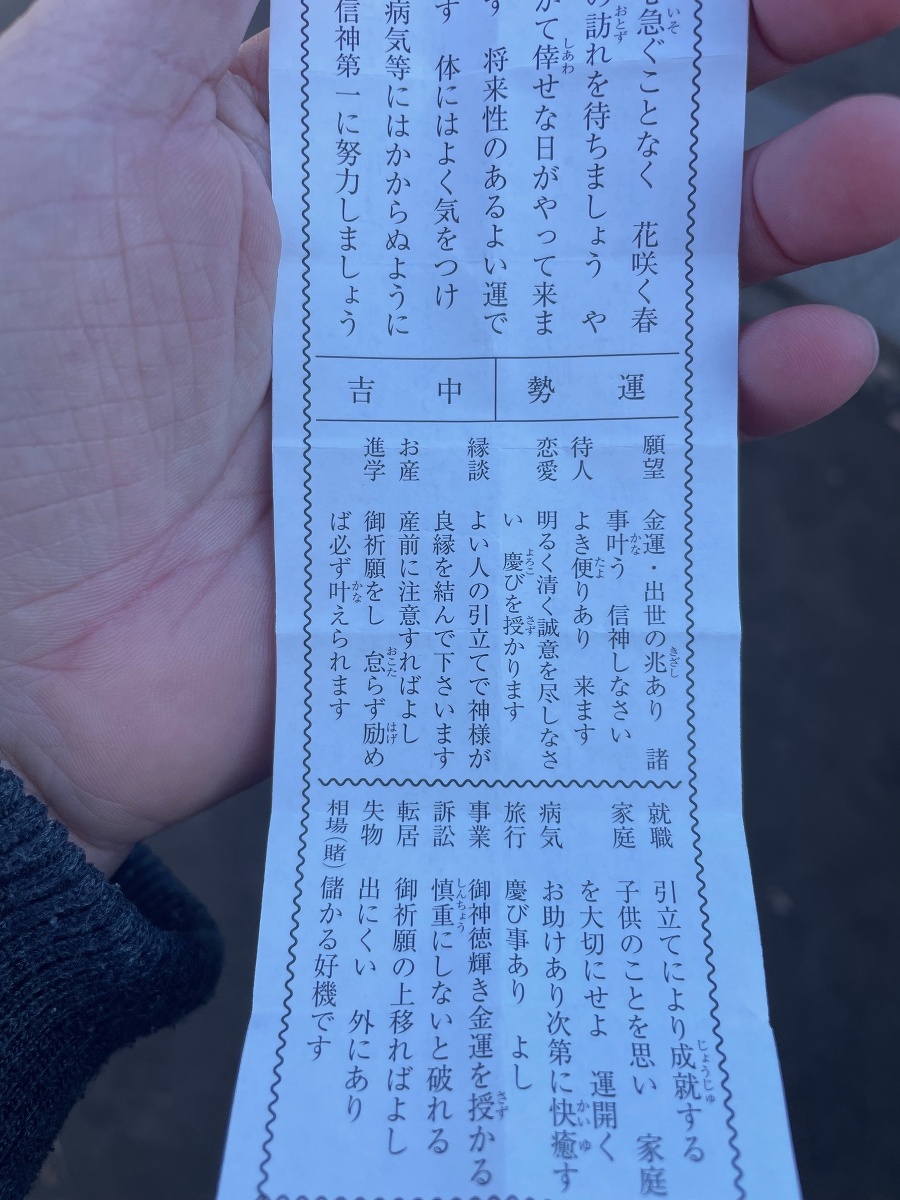 急ぐことなく　花咲く春
の訪れを待ちましょう　や
がて倖せな日がやって来ま
す　将来性のあるよい運で
す　体にはよく気をつけ
病気等にはかからぬように
信神第一に努力しましょう
運勢　中吉
願望　金運・出世の兆あり　諸
事叶う　信神しなさい
待人　よき便りあり　来ます
恋愛　明るく清く誠意を尽しなさ
い　慶びを授かります
縁談　よい人の引立てで神様が
良縁を結んで下さいます
お産　産前に注意すればよし
進学　御祈願をし　怠らず励め
ば必ず叶えられます
就職　引立てにより成就する
家庭　子供のことを思い　家庭
を大切にせよ　運開く
病気　お助けあり次第に快癒す
旅行　慶び事あり　よし
事業　御神徳輝き金運を授かる
訴訟　慎重にしないと破れる
転居　御祈願の上移ればよし
失物　出にくい　外にあり
相場(賭)　儲かる好機です